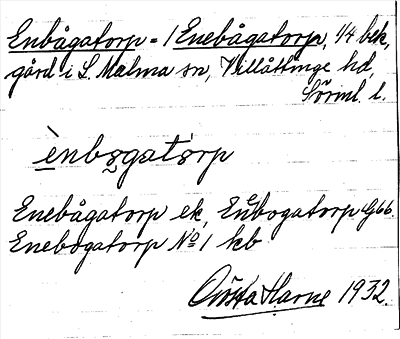 Enbågatorp = 1 Enebågatorp, 1/4 bek.
gård i L. Malma sn, Villåttinge hd,
Sörml. l.
ènbo̬gatòrp
Enebågatorp ek, Enebogatorp G66.
Enebogatorp No 1 kb
Gösta Harne 1932.